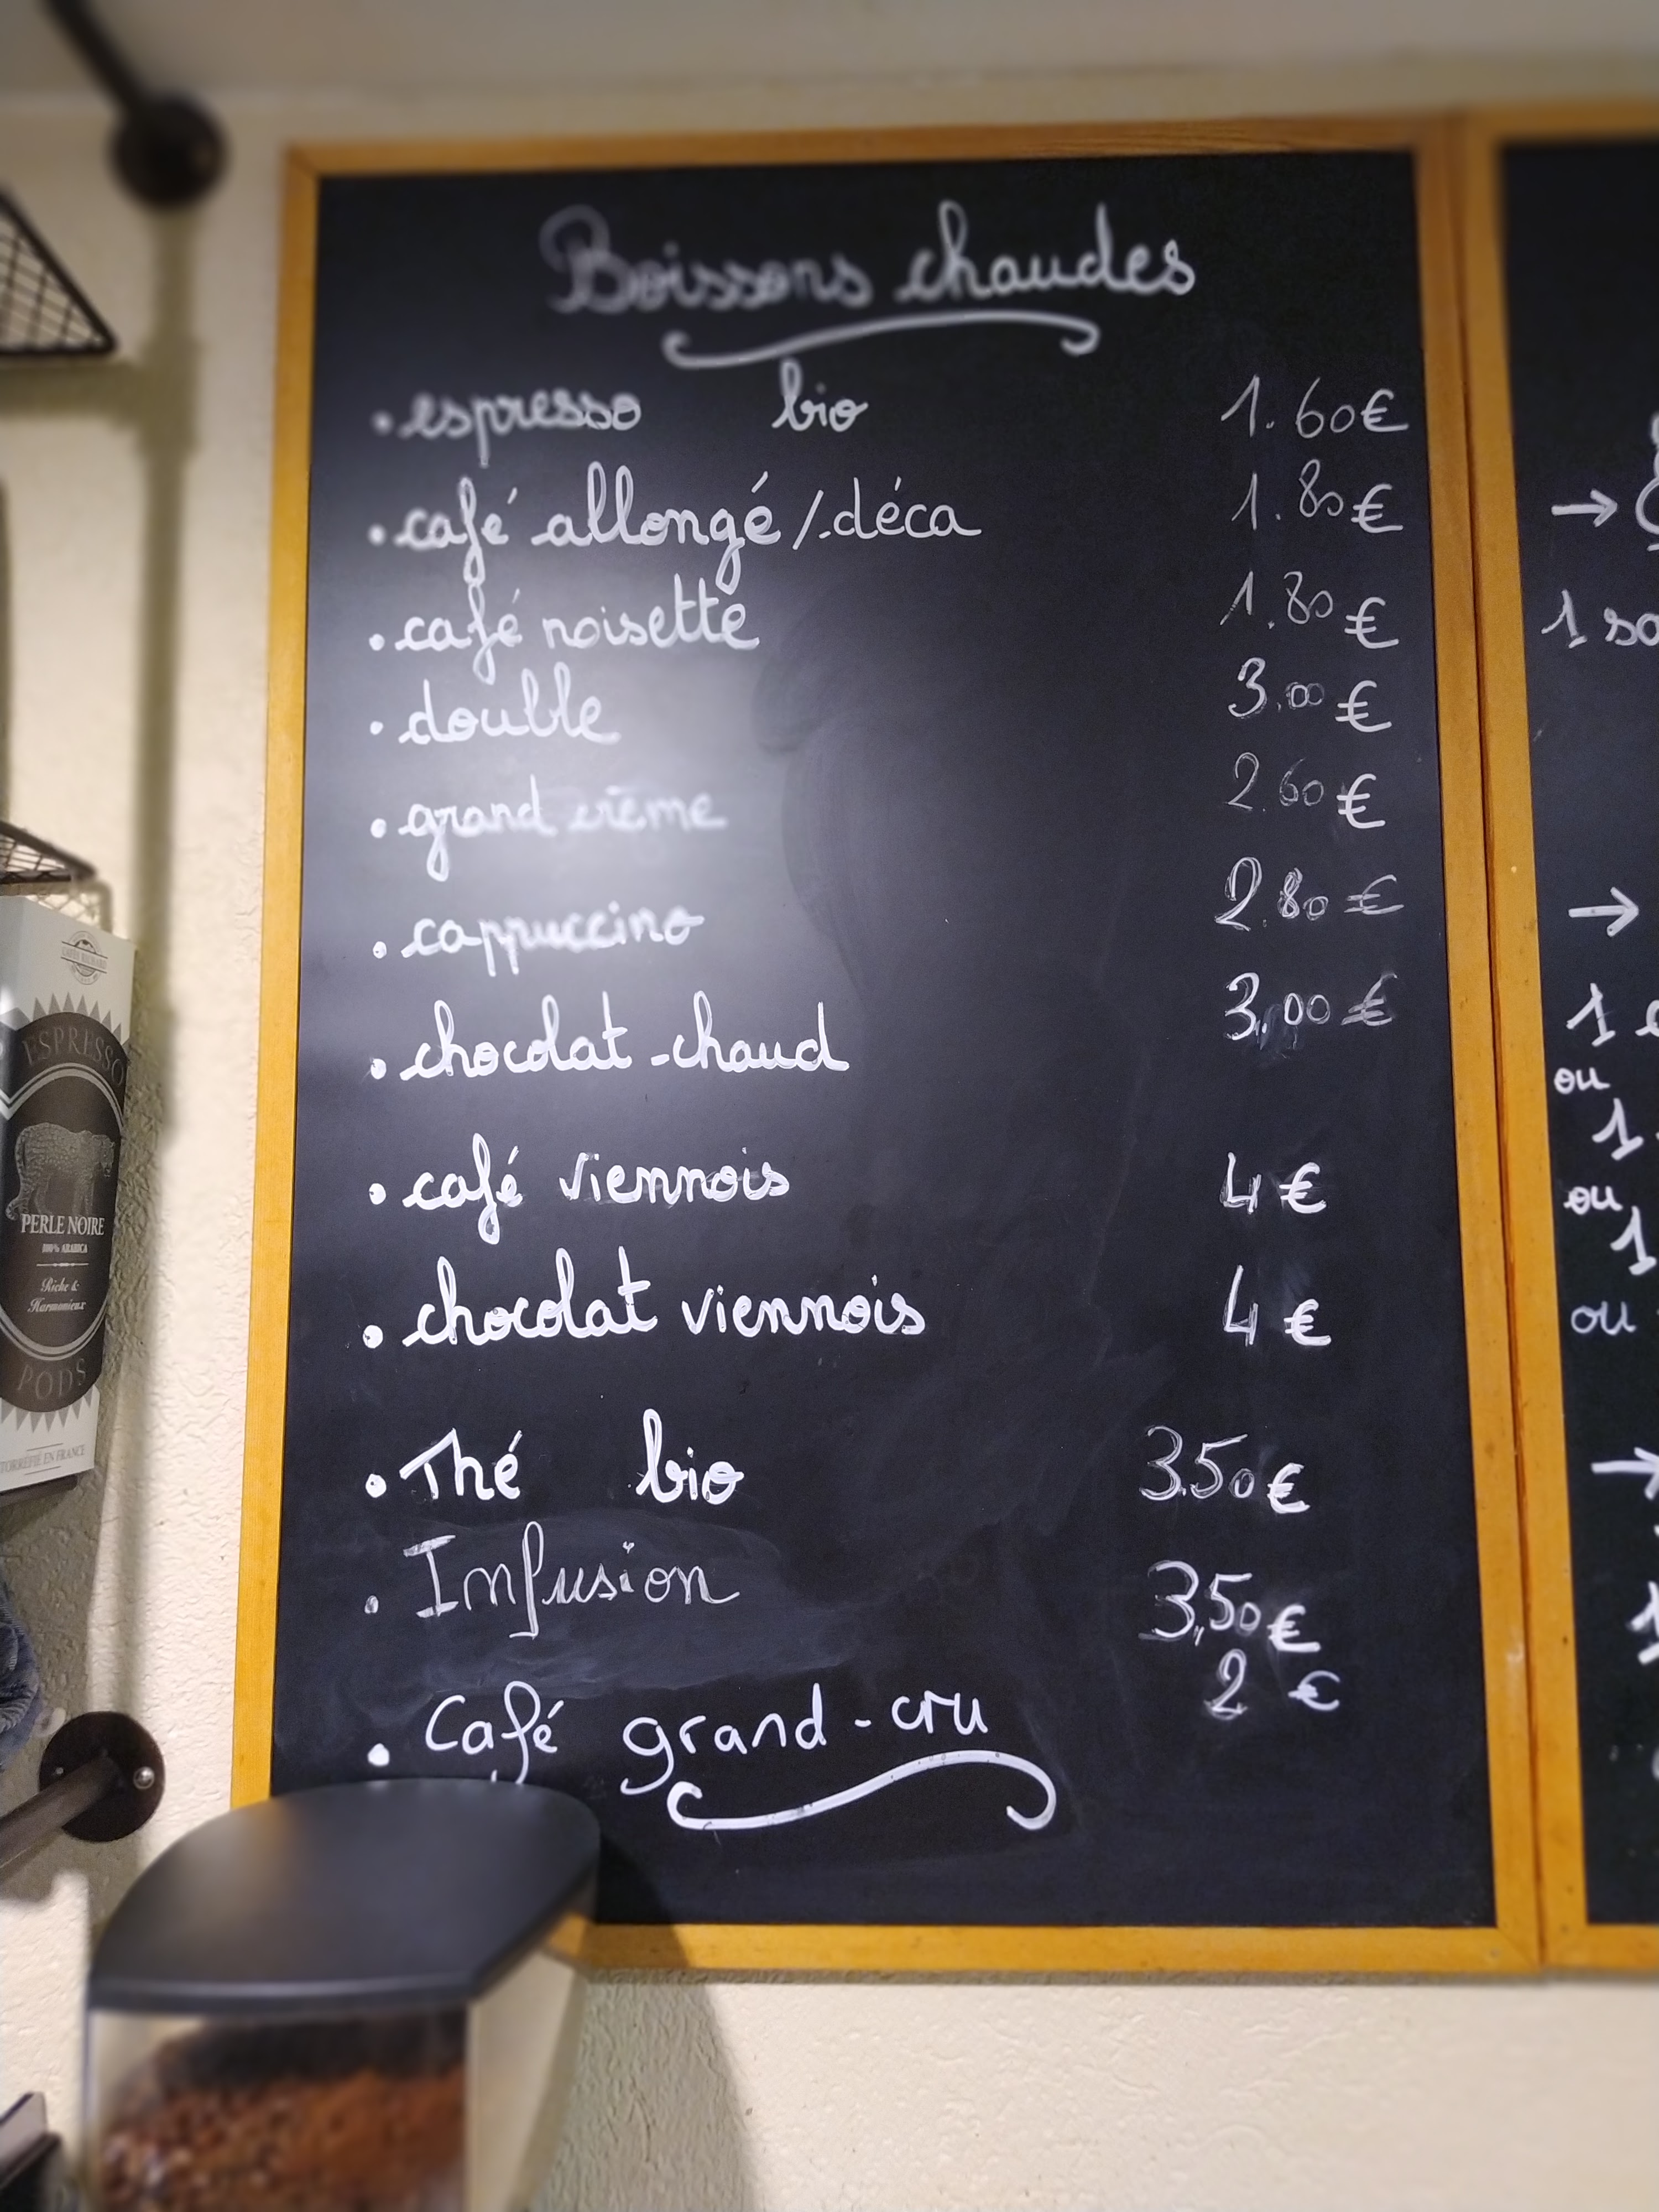 Boissons chaudes
• espresso bio 1.60€
• café allongé /.déca 1.80€
• café noisette 1.80€
• double 3.00€
• grand crème 2.60€
• cappuccino 2.80€
• chocolat-chaud 3,00€
• café viennois 4€
• chocolat viennois 4€
• Thé bio 3.50€
• Infusion 3,50€
• Café grand-cru 2€
→
1 so
→
1
ou
1
ou
1
ou
→
1
ESPRESSO
PERLE NOIRE
100% ARABICA
Riche &
Harmonieux
PODS
TORRÉFIÉ EN FRANCE